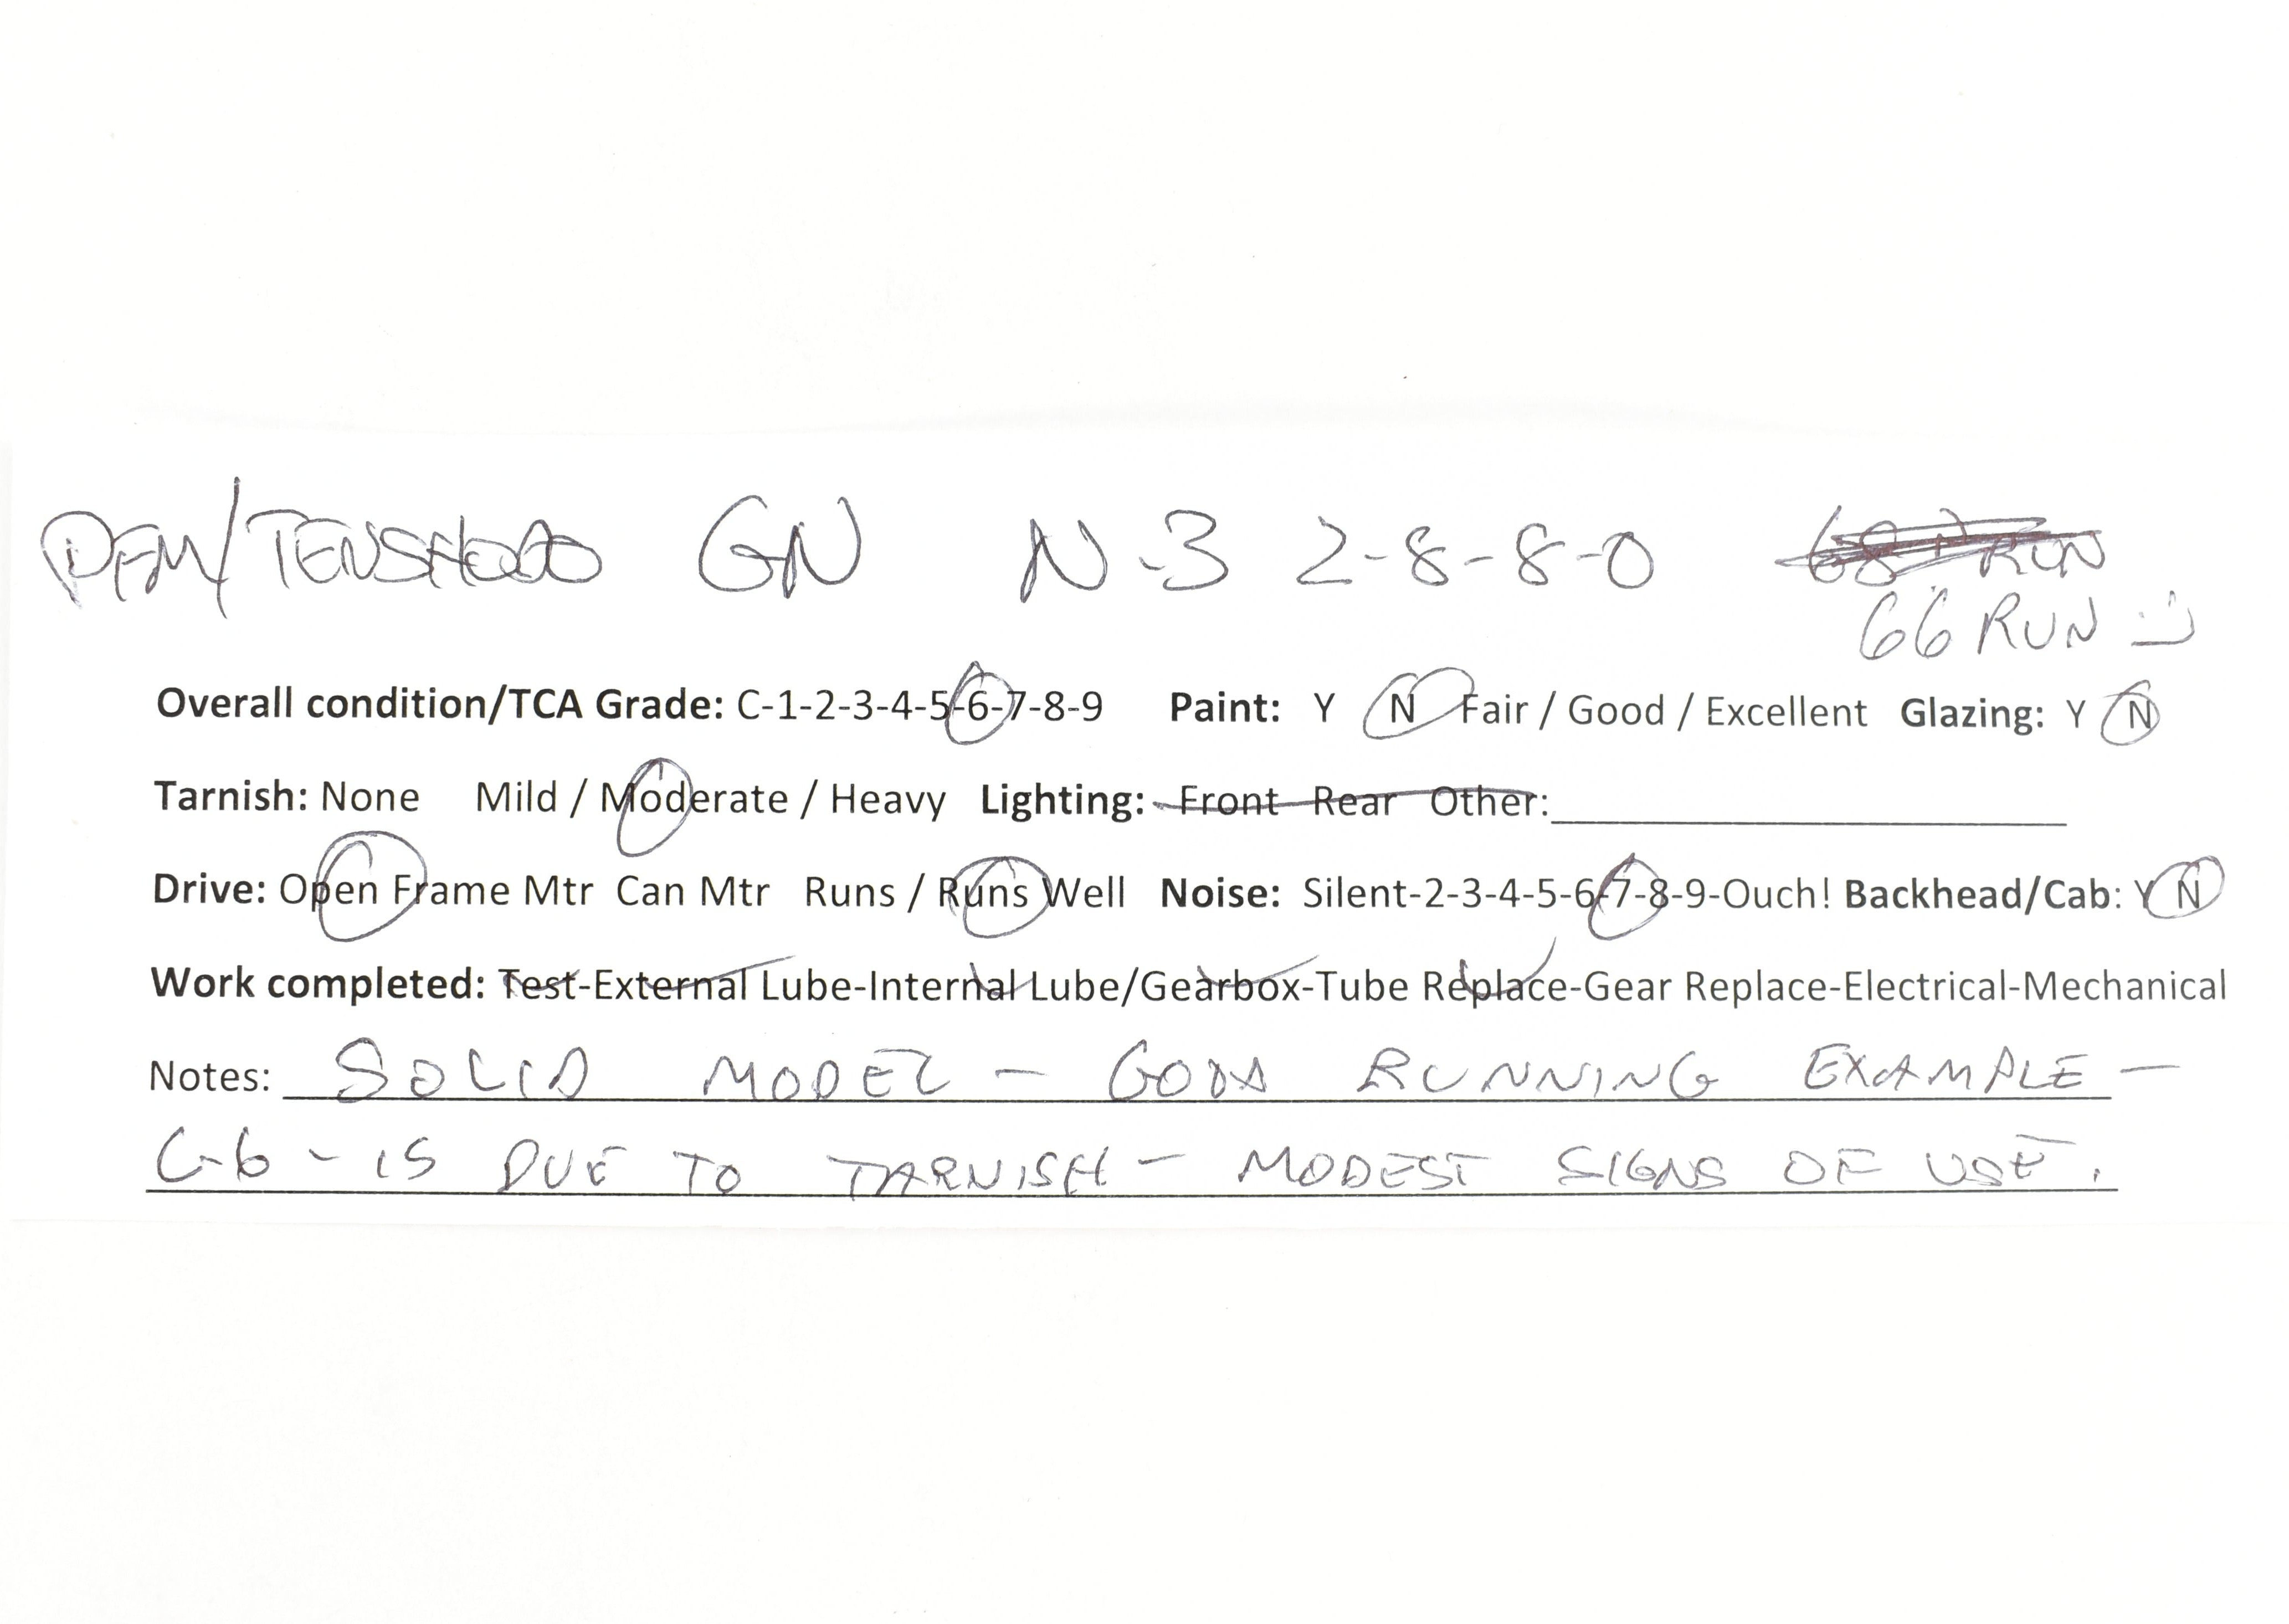 PFM/TENSHODO GN N-3 2-8-8-0 68 RUN
66 RUN :)
Overall condition/TCA Grade: C-1-2-3-4-5-6-7-8-9 Paint: Y N Fair / Good / Excellent Glazing: Y N
Tarnish: None Mild / Moderate / Heavy Lighting: Front Rear Other:
Drive: Open Frame Mtr Can Mtr Runs / Runs Well Noise: Silent-2-3-4-5-6-7-8-9-Ouch! Backhead/Cab: Y N
Work completed: Test-External Lube-Internal Lube/Gearbox-Tube Replace-Gear Replace-Electrical-Mechanical
Notes: SOLID MODEL - GOOD RUNNING EXAMPLE -
C-6 - IS DUE TO TARNISH - MODEST SIGNS OF USE.